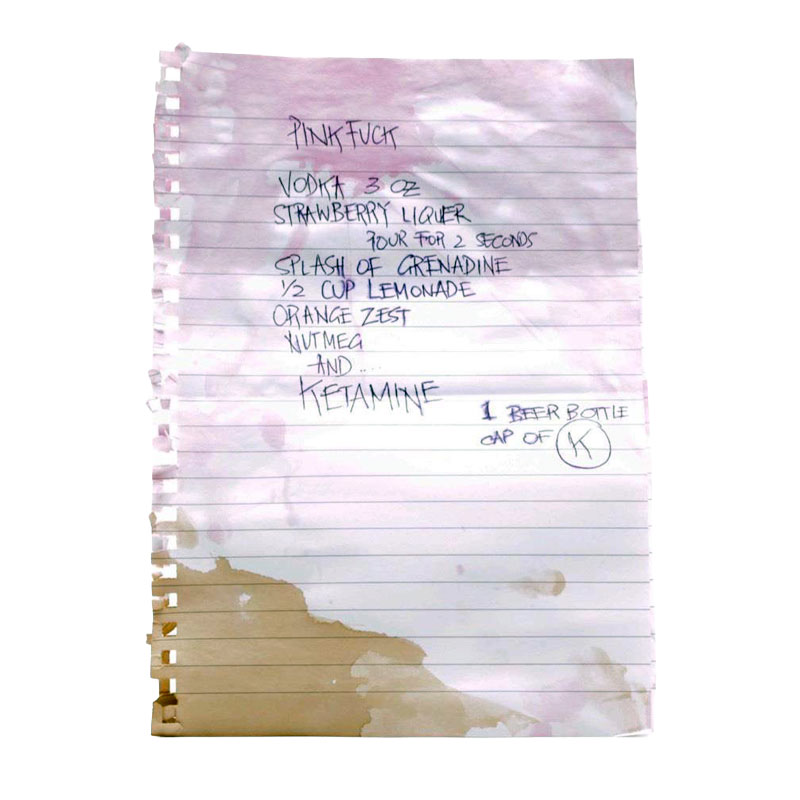 PINK FUCK
VODKA 3 OZ
STRAWBERRY LIQUER
POUR FOR 2 SECONDS
SPLASH OF GRENADINE
1/2 CUP LEMONADE
ORANGE ZEST
NUTMEG
AND...
KETAMINE
1 BEER BOTTLE
CAP OF K